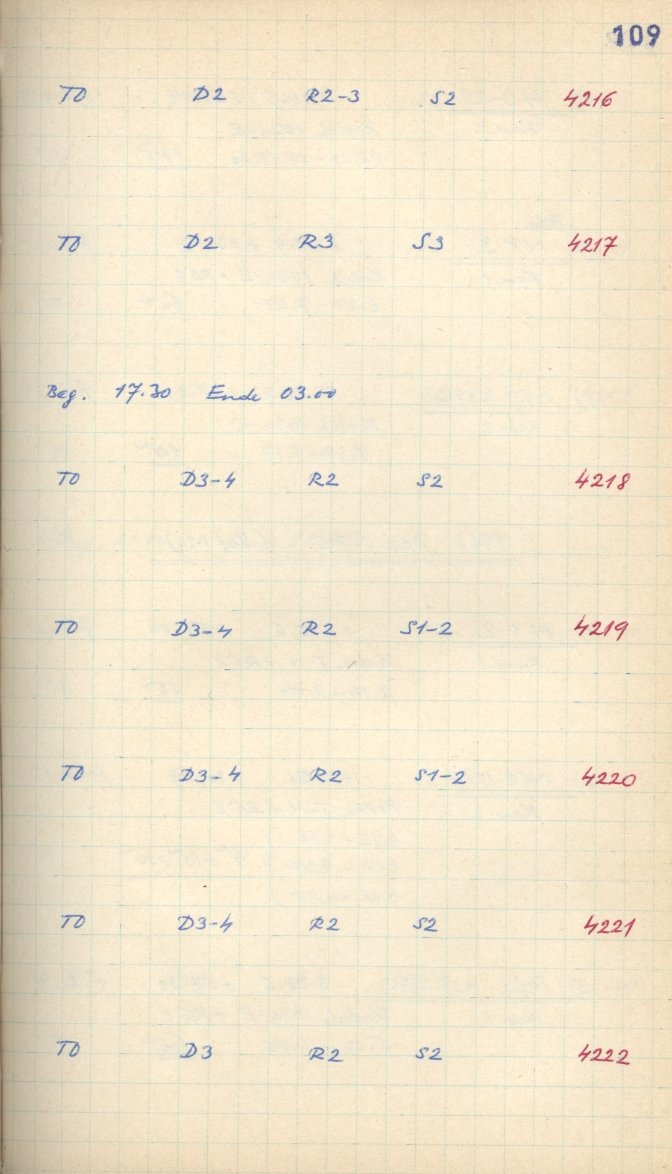 109
TD D2 R2-3 S2 4216
TD D2 R3 S3 4217
Beg. 17.30 Ende 03.00
TD D3-4 R2 S2 4218
TD D3-4 R2 S1-2 4219
TD D3-4 R2 S1-2 4220
TD D3-4 R2 S2 4221
TD D3 R2 S2 4222